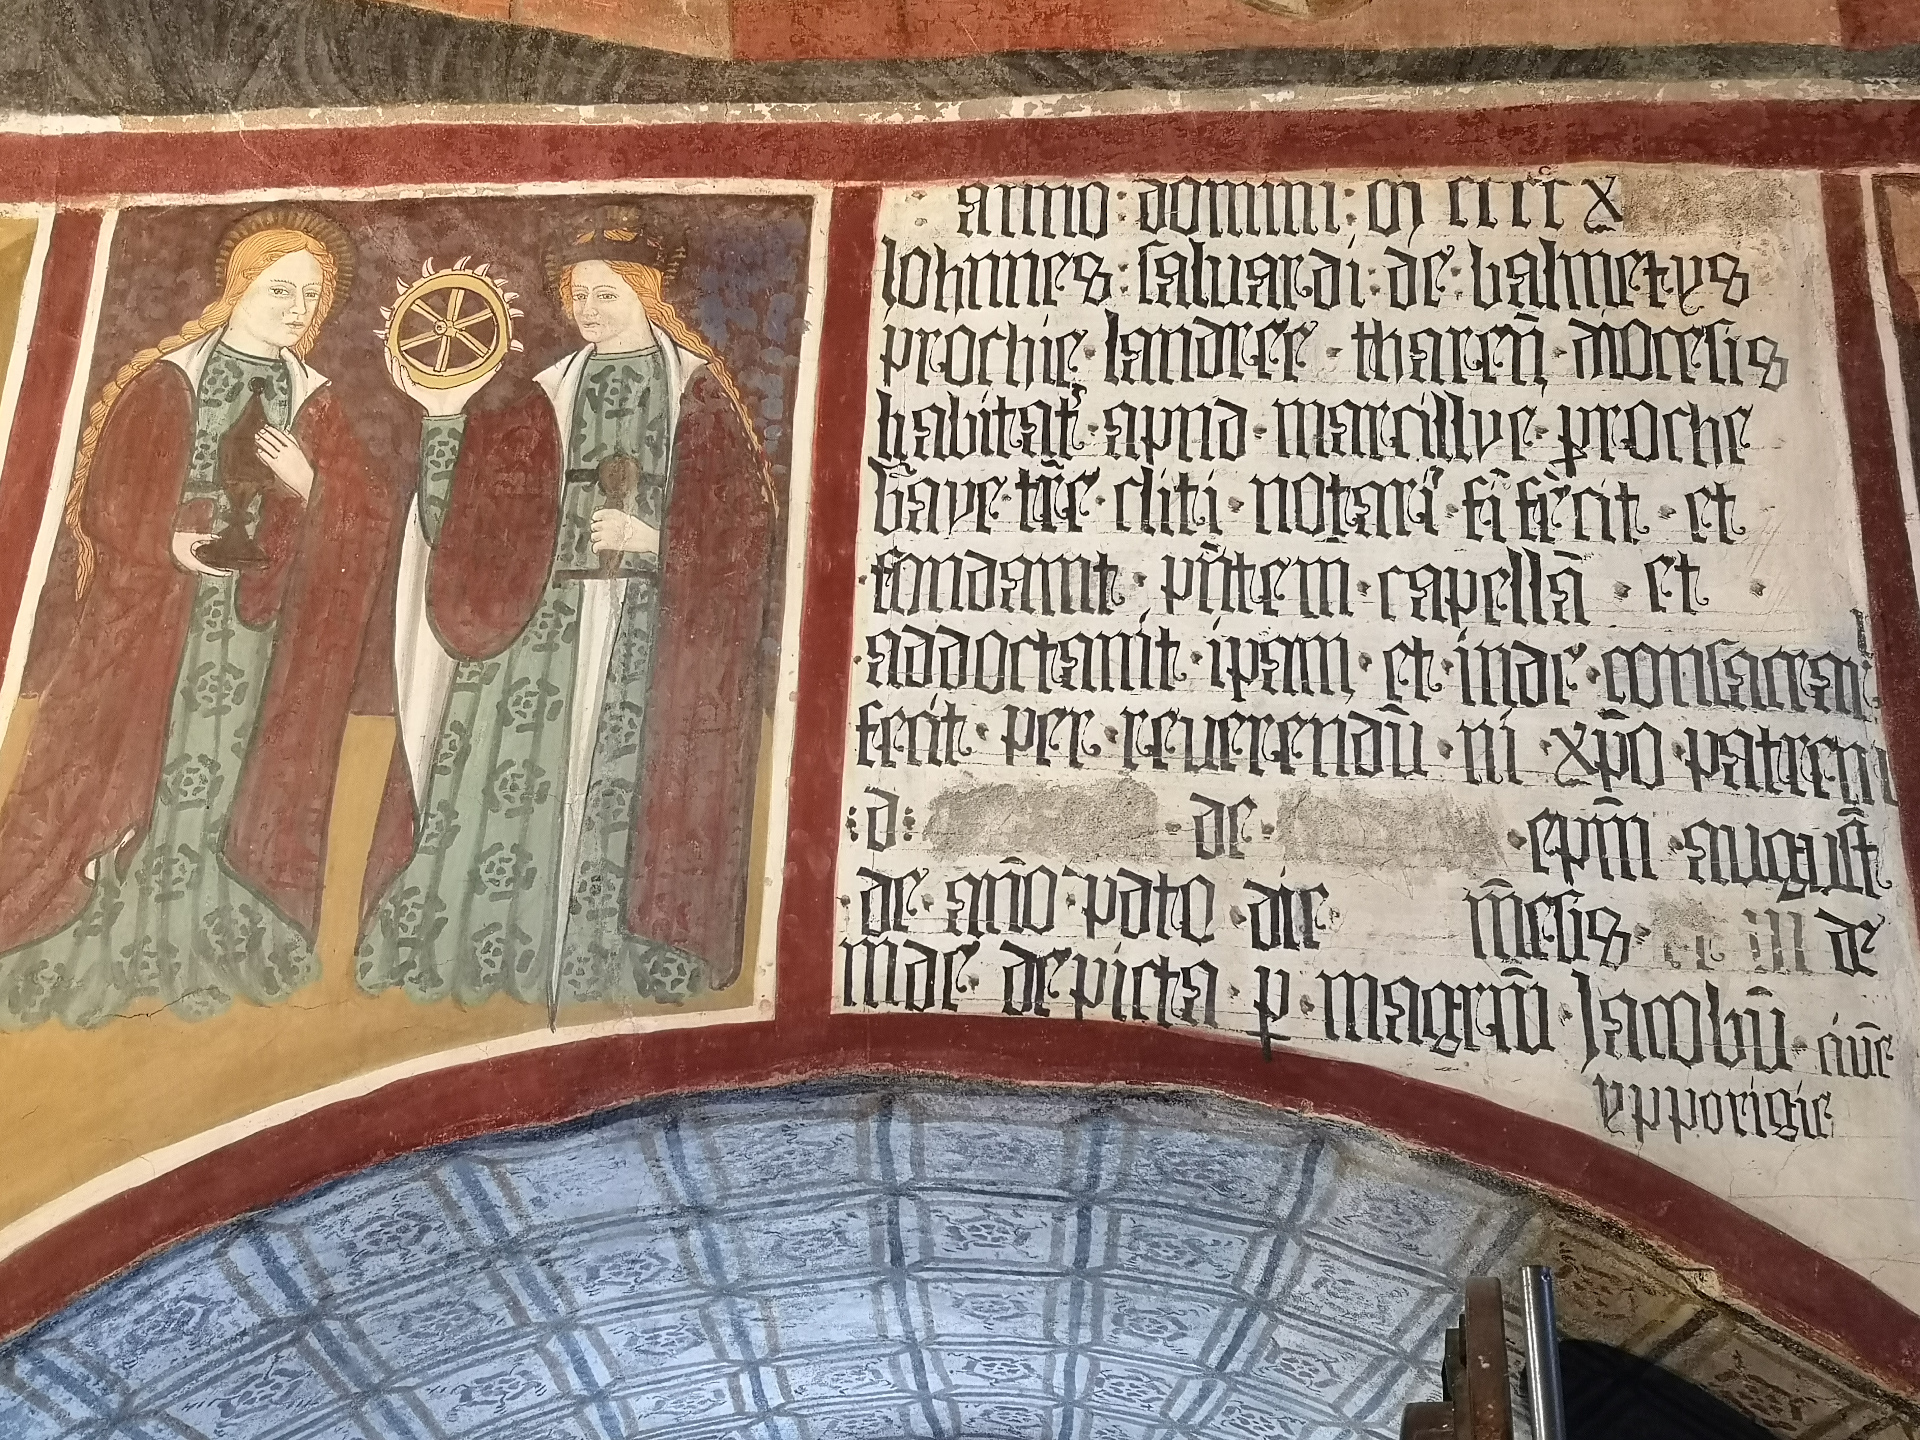 anno · domini · m cccc x
Iohnnes : saluardi · de · balmetys
prochie · landree · tharen̄ · diocesis
habitat᷑ · apud · marcillye · ꝑroche
baye · tr̄e · cliti · notari᷑ · fi fecit · et
fondauit · pn̄tem · capellā · et
addoctauit · ipam · et · inde · consacrar᷑
fecit · per · reuerendū · ni · xp̄o · patrem
: d : de · ep̄m · august̄
· de · an̄o · pdto · die m̄esis · de
inde · depicta · ꝑ · magrm̄ · Jacobū ·
ypporigie